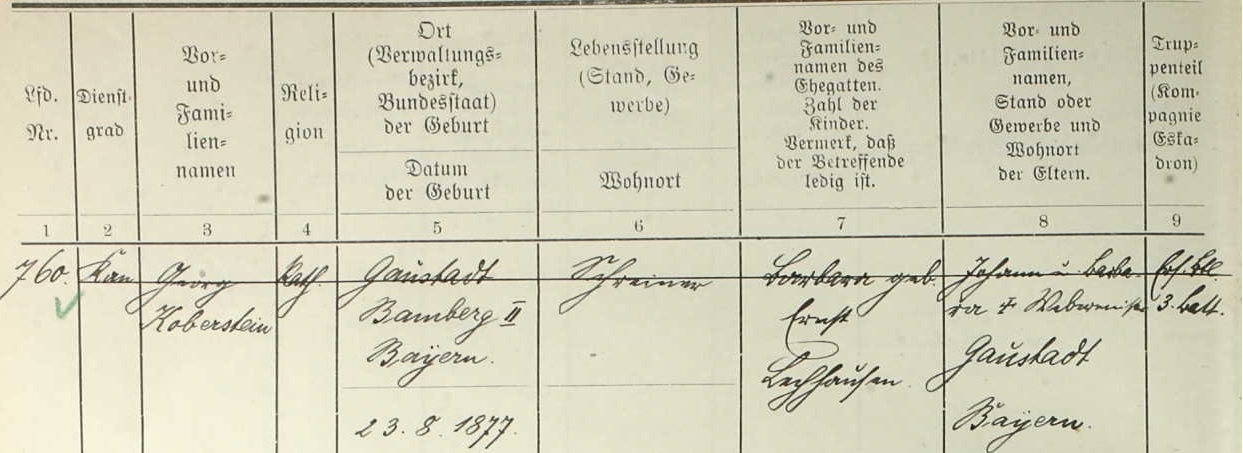 Lfd.
Nr.
Dienst-
grad
Vor-
und
Fami-
lien-
namen
Reli-
gion
Ort
(Verwaltungs-
bezirk,
Bundesstaat)
der Geburt
Datum
der Geburt
Lebensstellung
(Stand, Ge-
werbe)
Wohnort
Vor- und
Familien-
namen des
Ehegatten.
Zahl der
Kinder.
Vermerk, daß
der Betreffende
ledig ist.
Vor- und
Familien-
namen,
Stand oder
Gewerbe und
Wohnort
der Eltern.
Trup-
penteil
(Kom-
pagnie
Eska-
dron)
1
2
3
4
5
6
7
8
9
760.
Kan
Georg
Koberstein
Kath.
Gaustadt
Bamberg II
Bayern.
23. 8. 1877.
Schreiner
Barbara geb.
Ernst
Lechhausen.
Johann u. Barba-
ra
Gaustadt
Bayern.
Ers. Btl.
3. Batt.